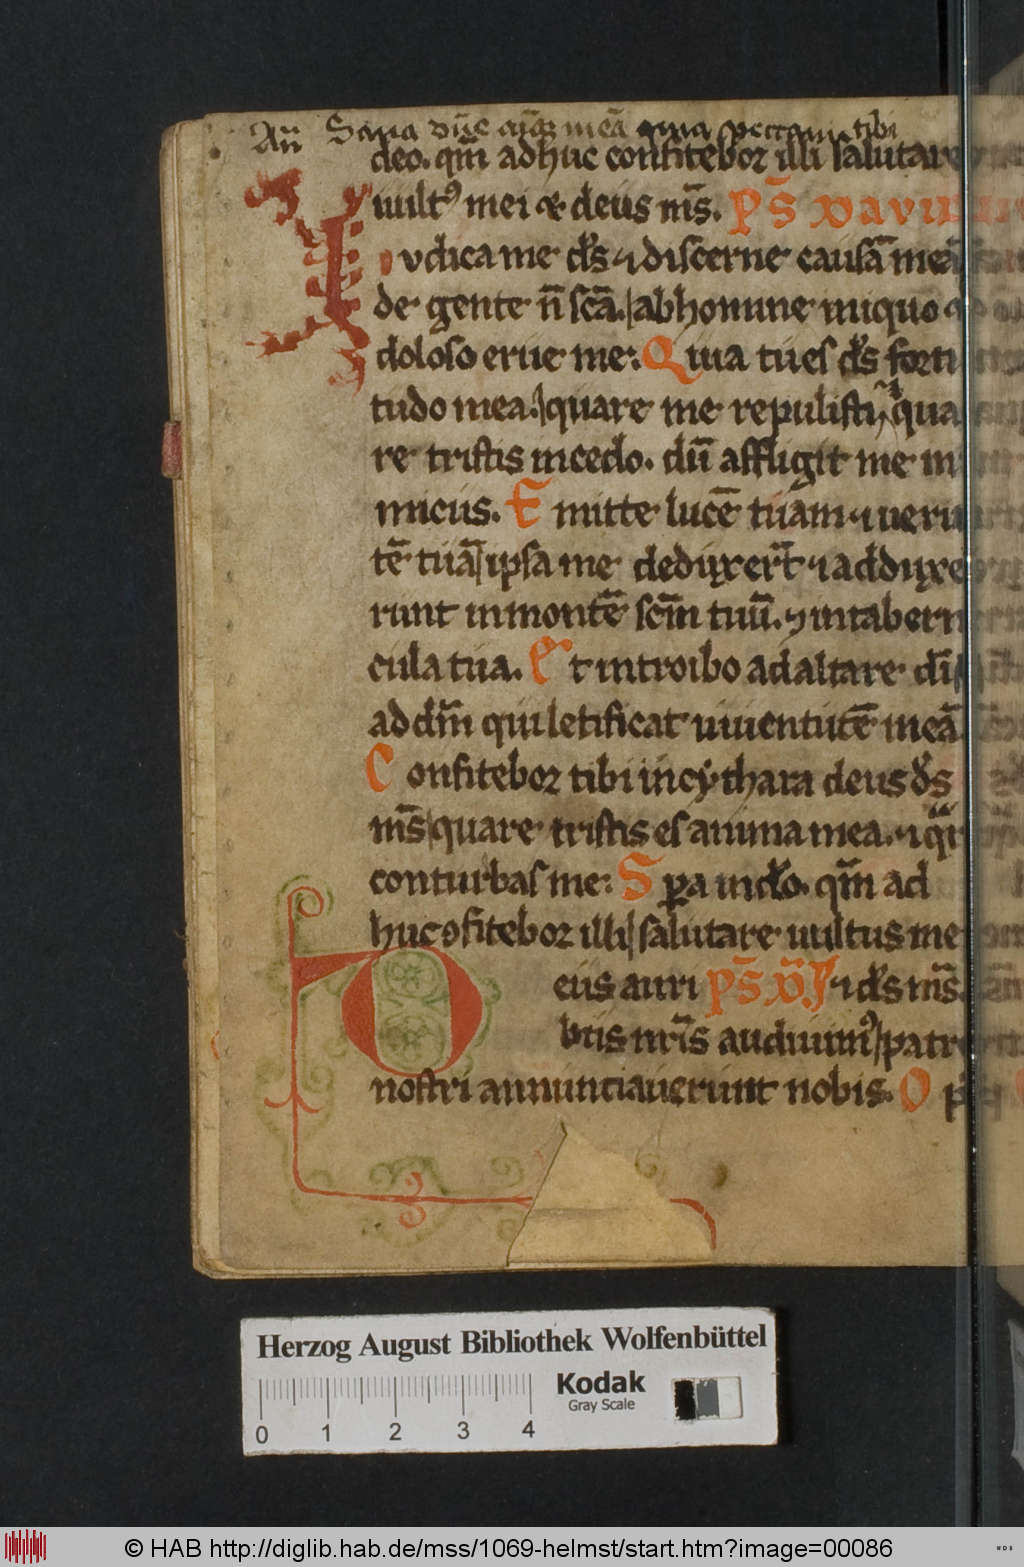 Añ Sana dñe aĩaʒ meã quia peccaui tibi
deo. qm̃ adhuc confitebor illi salutare
uultꝰ mei ⁊ deus m̃s. p̃s dauid
Iudica me ds̃ ⁊ discerne causã meã
de gente ñ scã. ab homine iniquo ⁊
doloso erue me. Quia tu es ds̃ forti
tudo mea. quare me repulisti ⁊ qua
re tristis incedo. dũ affligit me ini
micus. Emitte lucẽ tuam ⁊ ueri
tẽ tuã ipsa me deduxer̃t ⁊ adduxe
runt in montẽ scm̃ tuũ. ⁊ in tabern
cula tua. Et introibo ad altare dĩ
ad dm̃ qui letificat iuuentutẽ meã
Confitebor tibi in cythara deus ds̃
m̃s quare tristis es anima mea. ⁊ qr̃
conturbas me. Spera in deo. qm̃ ad
huc ꝯfitebor illi salutare uultus me
Deus auri p̃s ⁊ ds̃ m̃s.
bus nr̃is audiuimꝰ patr
nostri annunciauerunt nobis. Op
Herzog August Bibliothek Wolfenbüttel
Kodak
Gray Scale
0 1 2 3 4
© HAB http://diglib.hab.de/mss/1069-helmst/start.htm?image=00086